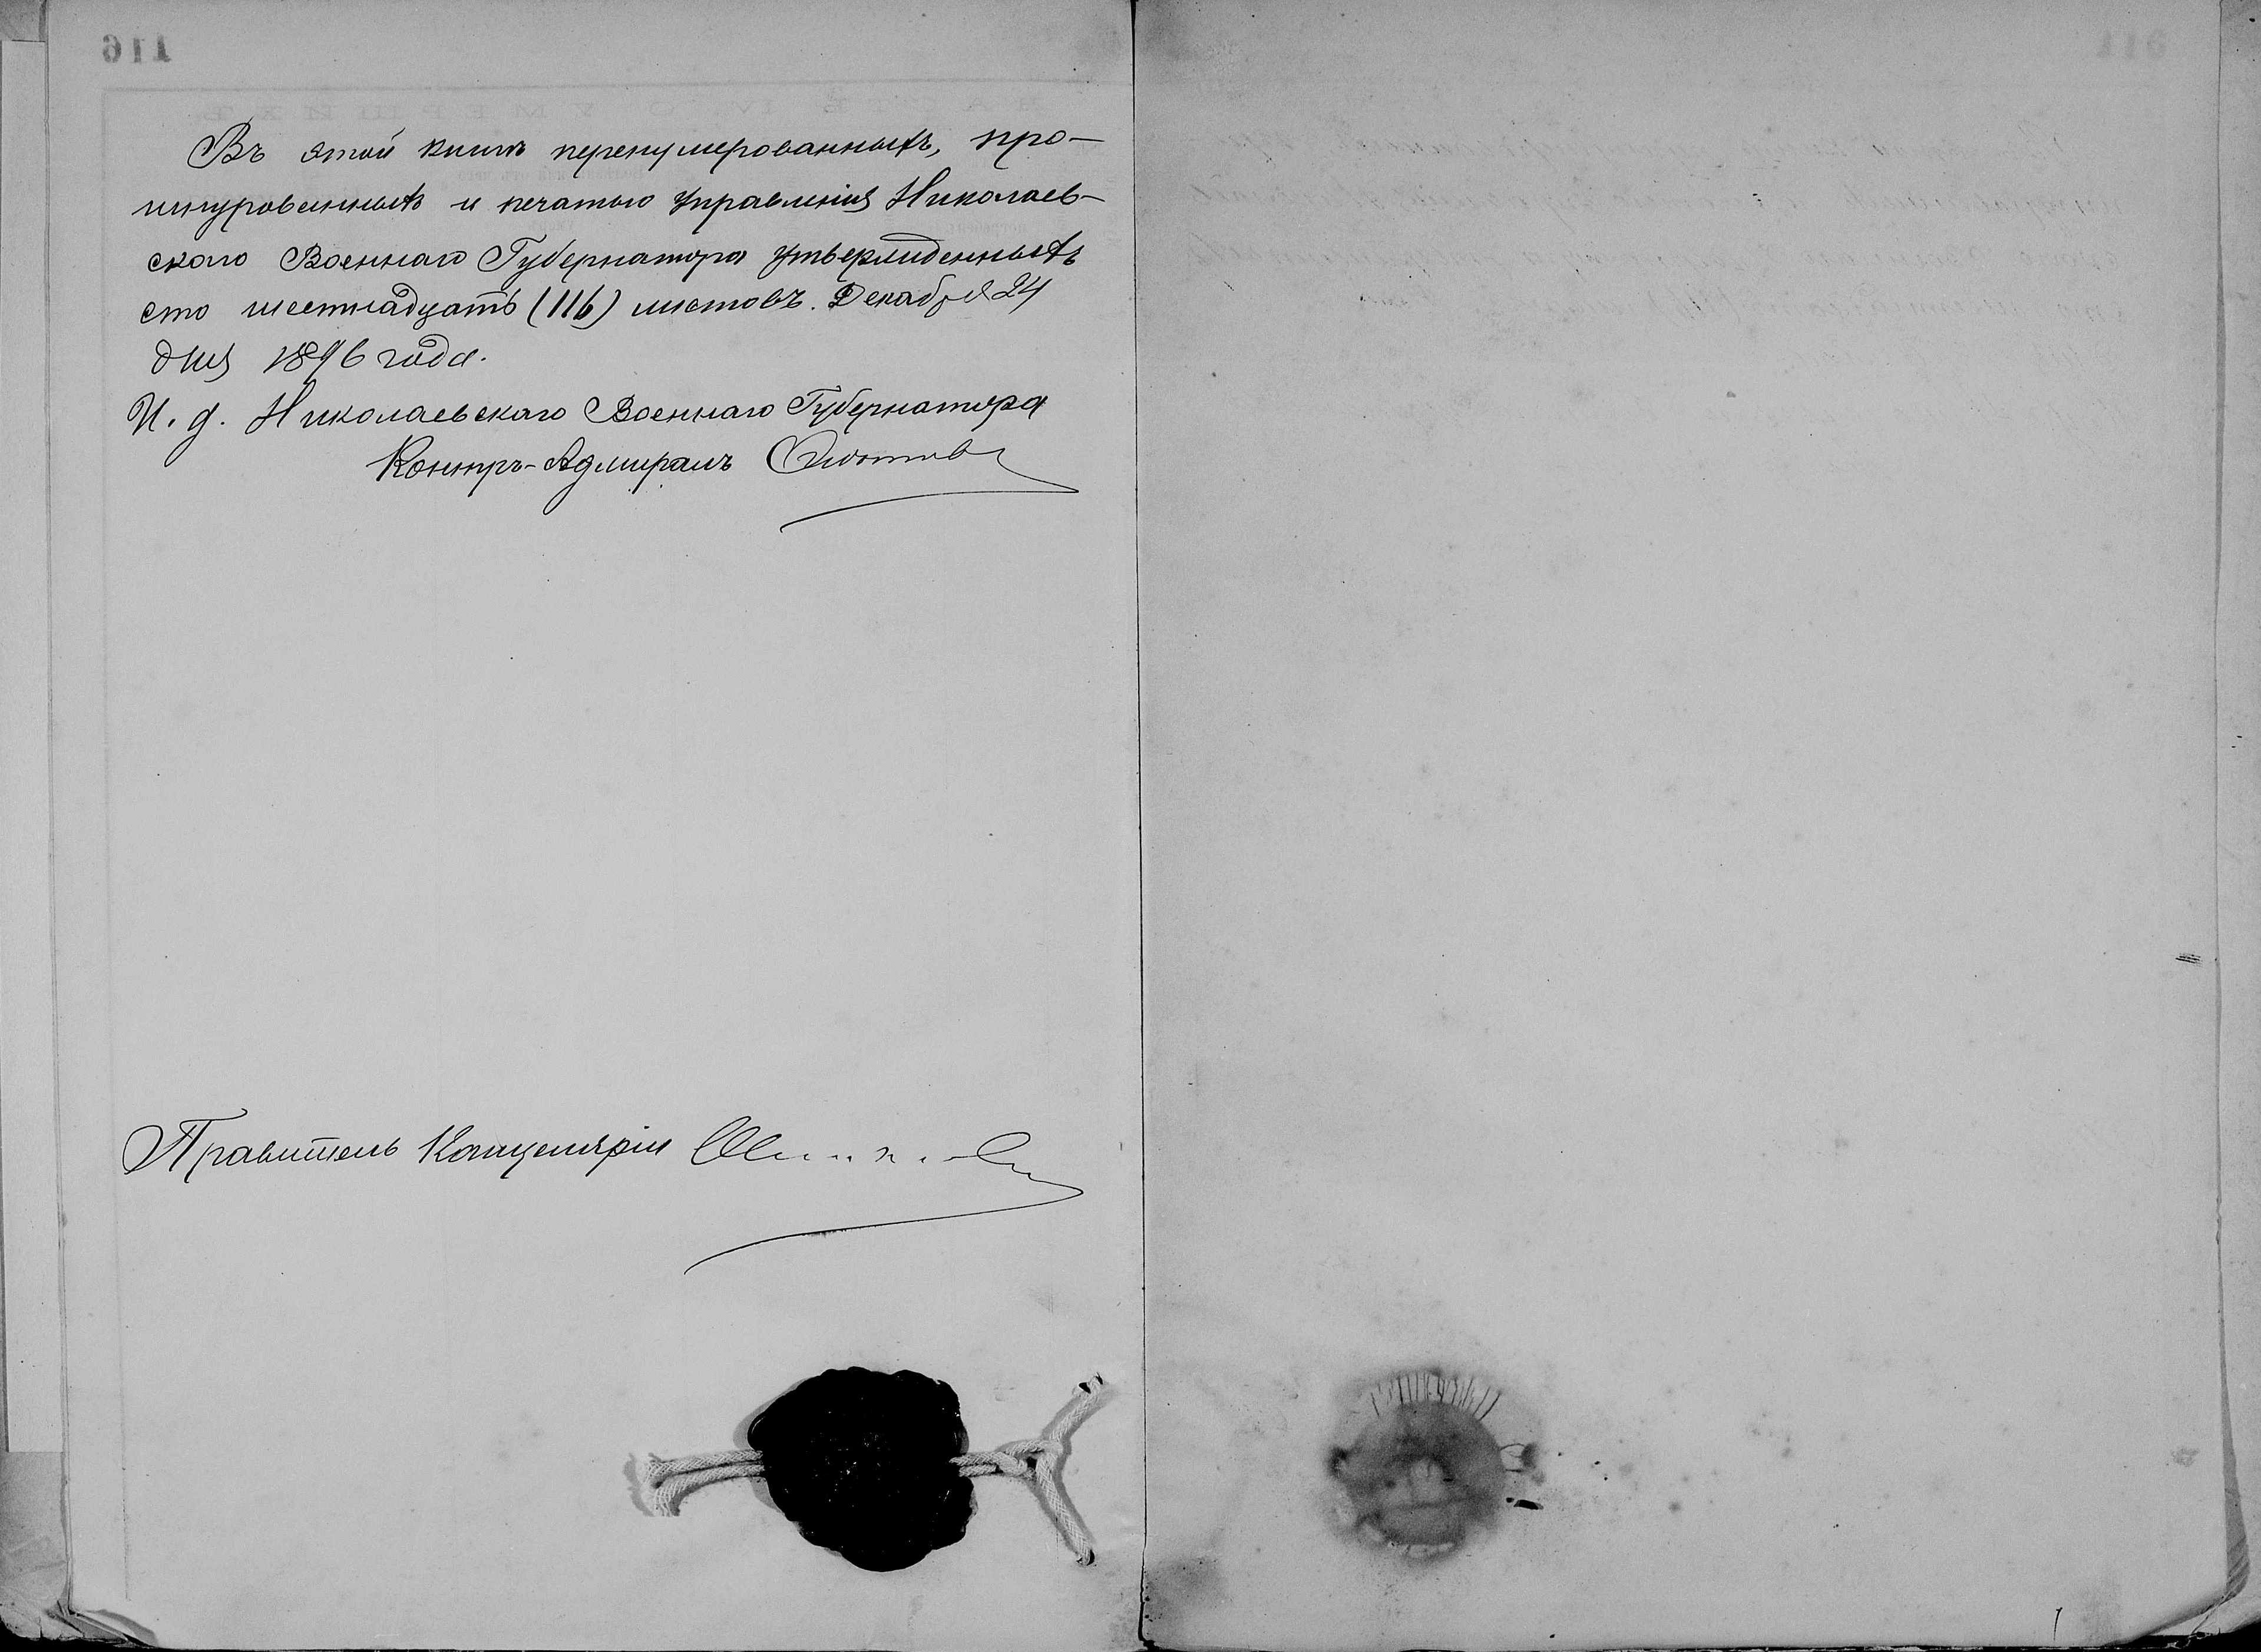 Въ этой книгѣ перенумерованныхъ, про-
шнурованныхъ и печатью Управленія Николаев-
скаго Военнаго Губернатора утвержденныхъ
сто шестнадцать (116) листовъ. Декабря 24
дня 1896 года.
И. д. Николаевскаго Военнаго Губернатора
Контръ-Адмиралъ
Правитель Канцеляріи
116